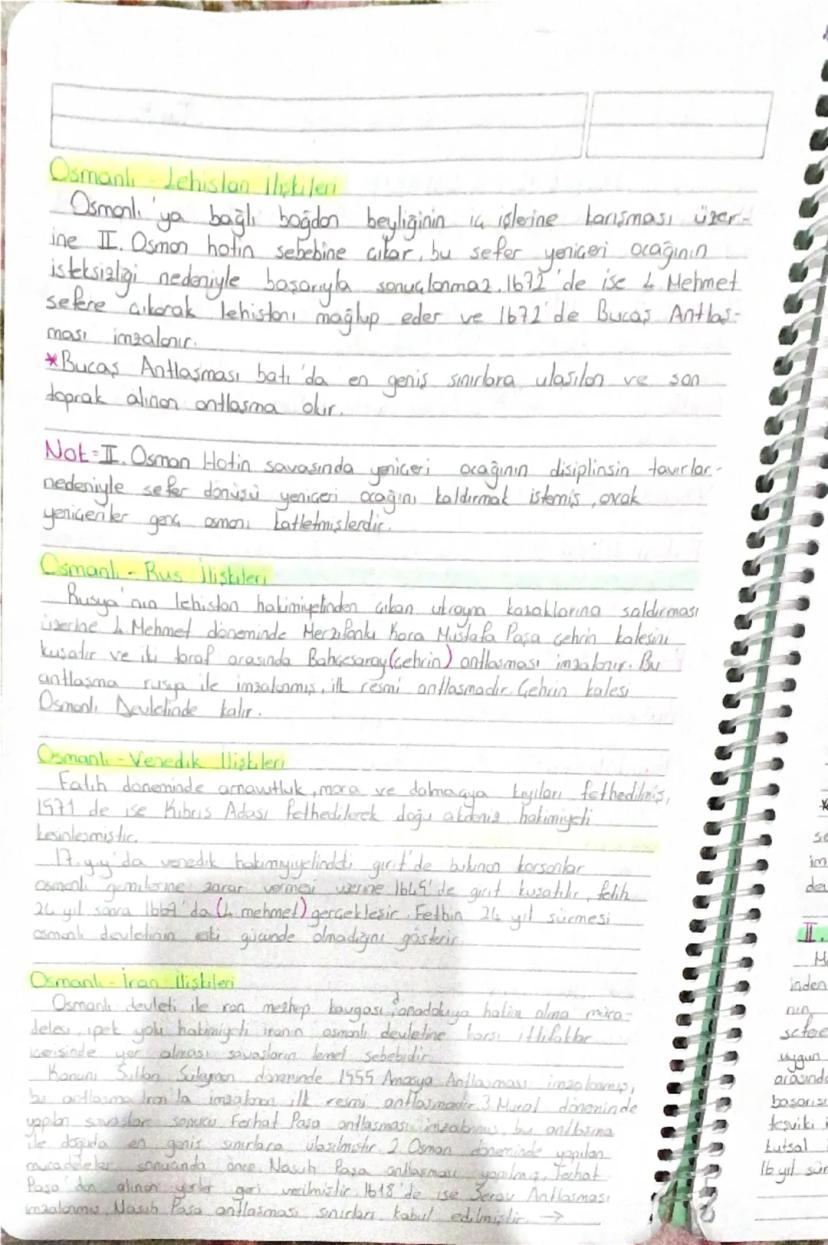 Osmanlı - Lehistan İlişkileri
Osmanlı'ya bağlı boğdan beyliğinin iç işlerine karışması üzer-
ine II. Osman hotin sebebine çıkar, bu sefer yeniçeri ocağının
isteksizliği nedeniyle başarıyla sonuçlanmaz. 1672'de ise 4 Mehmet
sefere çıkarak lehistanı mağlup eder ve 1672'de Bucaş Antlaş-
ması imzalanır.
*Bucaş Antlaşması batı'da en geniş sınırlara ulaşılan ve son
toprak alınan antlaşma olur.
Not = II. Osman Hotin savaşında yeniçeri ocağının disiplinsin tavırlar-
nedeniyle sefer dönüşü yeniçeri ocağını kaldırmak istemiş, ancak
yeniçeriler genç osmanı katletmişlerdir.
Osmanlı - Rus İlişkileri
Rusya'nın lehistan hakimiyetinden çıkan ukrayna kazaklarına saldırması
üzerine 4 Mehmet döneminde Merzifonlu Kara Mustafa Paşa çehrin kalesini
kuşatır ve iki taraf arasında Bahçesaray (çehrin) antlaşması imzalanır. Bu
antlaşma rusya ile imzalanmış, ilk resmi antlaşmadır. Çehrin kalesi
Osmanlı Devletinde kalır.
Osmanlı - Venedik İlişkileri
Fatih döneminde arnavutluk, mora ve dalmaçya kıyıları fethedilmiş,
1571 de ise Kıbrıs Adası fethedilerek doğu akdeniz hakimiyeti
kesinleşmiştir.
17. yy'da venedik girit'de bulunan korsanlar
osmanlı gemilerine zarar vermesi üzerine 1645'de girit kuşatılır, fetih
24 yıl sonra 1669'da (4 mehmet) gerçekleşir. Fethin 24 yıl sürmesi
osmanlı devletinin eski gücünde olmadığını gösterir.
Osmanlı - İran İlişkileri
Osmanlı devleti ile ran mezhep kavgası, anadoluya hakim olma müca-
delesi, ipek yolu hakimiyeti iranın osmanlı devletine karşı ittifaklar
içerisinde yer alması savaşların temel sebebidir.
Kanuni Sultan Süleyman döneminde 1555 Amasya Antlaşması imzalanmış,
bu antlaşma İran'la imzalanan ilk resmi antlaşmadır. 3 Murat döneminde
yapılan savaşlar sonucu Ferhat Paşa antlaşması imzalanmış, bu antlaşma
ile doğuda en geniş sınırlara ulaşılmıştır. 2 Osman döneminde yapılan
mücadeleler sonucunda önce Nasuh Paşa antlaşması yapılmış, Ferhat
Paşa'dan alınan yerler geri verilmiştir. 1618'de ise Serav Antlaşması
imzalanmış, Nasuh Paşa antlaşması sınırları kabul edilmiştir →
II.
inden
nın
sefer
uygun
arasında
başarısı
teşviki
kutsal
16 yıl sür